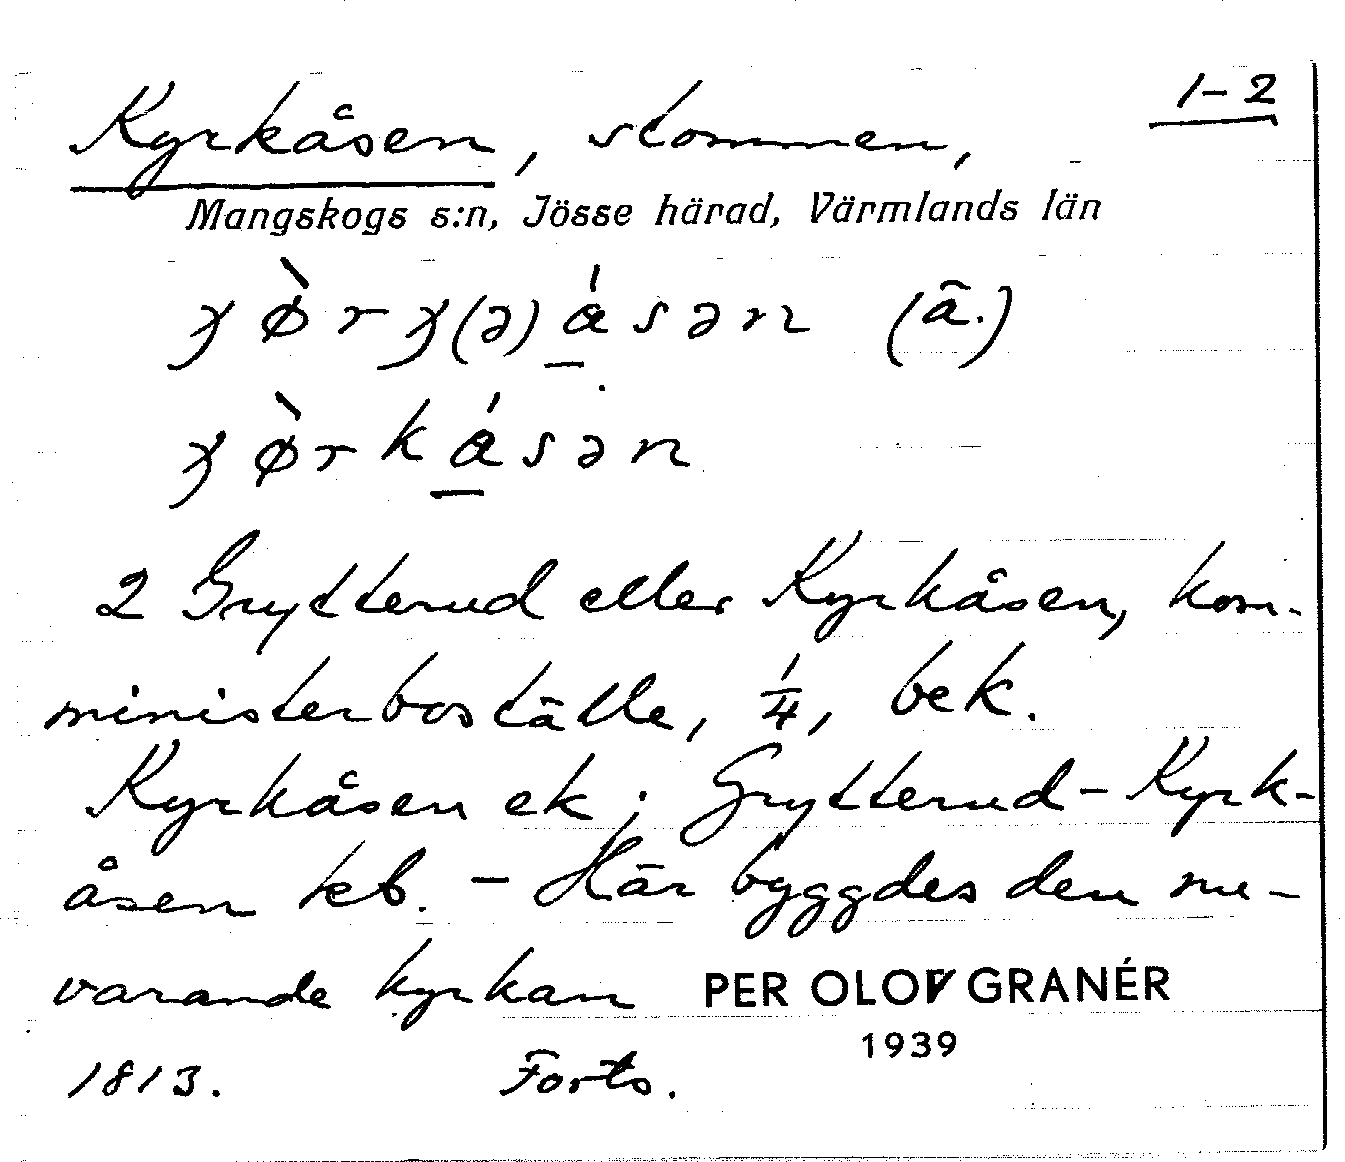 Kyrkåsen, stommen, 1-2
Mangskogs s:n, Jösse härad, Värmlands län
2 Grytterud eller Kyrkåsen, kom-
ministerboställe, 1/4, bek.
Kyrkåsen ek; Grytterud-Kyrk-
åsen kb. - Här byggdes den nu-
varande kyrkan PER OLOV GRANÉR
1939
1813. Forts.